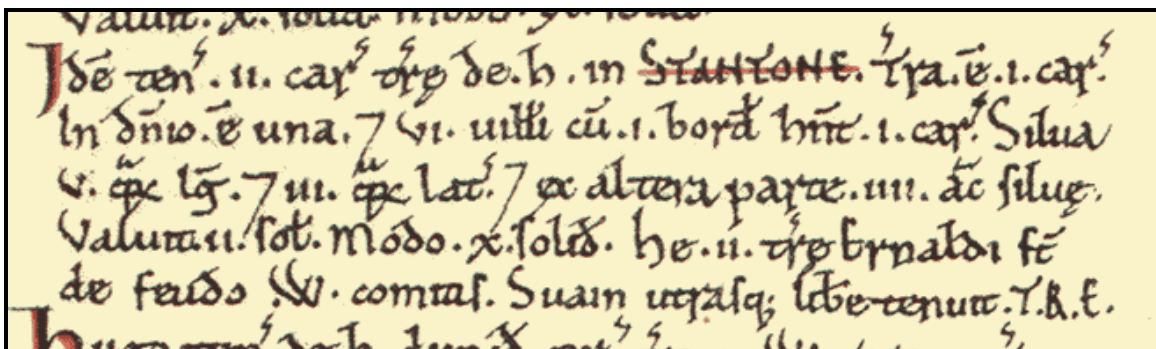 Valuit. x. solid. modo. xx. solid.
Idē ten̛. ii. car̛ tr̛ę de. h. in STANTONE. Tr̛a. ē. i. car̛.
In dn̄io. ē una. ⁊ vi. uilli cū. i. bord hn̄t. i. car̛. Silua
v. q̈rc lḡ. ⁊ iii. q̈rc lat̛. ⁊ ex altera parte. iiii. āc siluę.
Valuit. ii. sol. Modo. x. solid. he. ii. tr̛ę Ernaldi st̄
de feudo .W. comitis. Suain utrasq; libe tenuit. T.R.E.